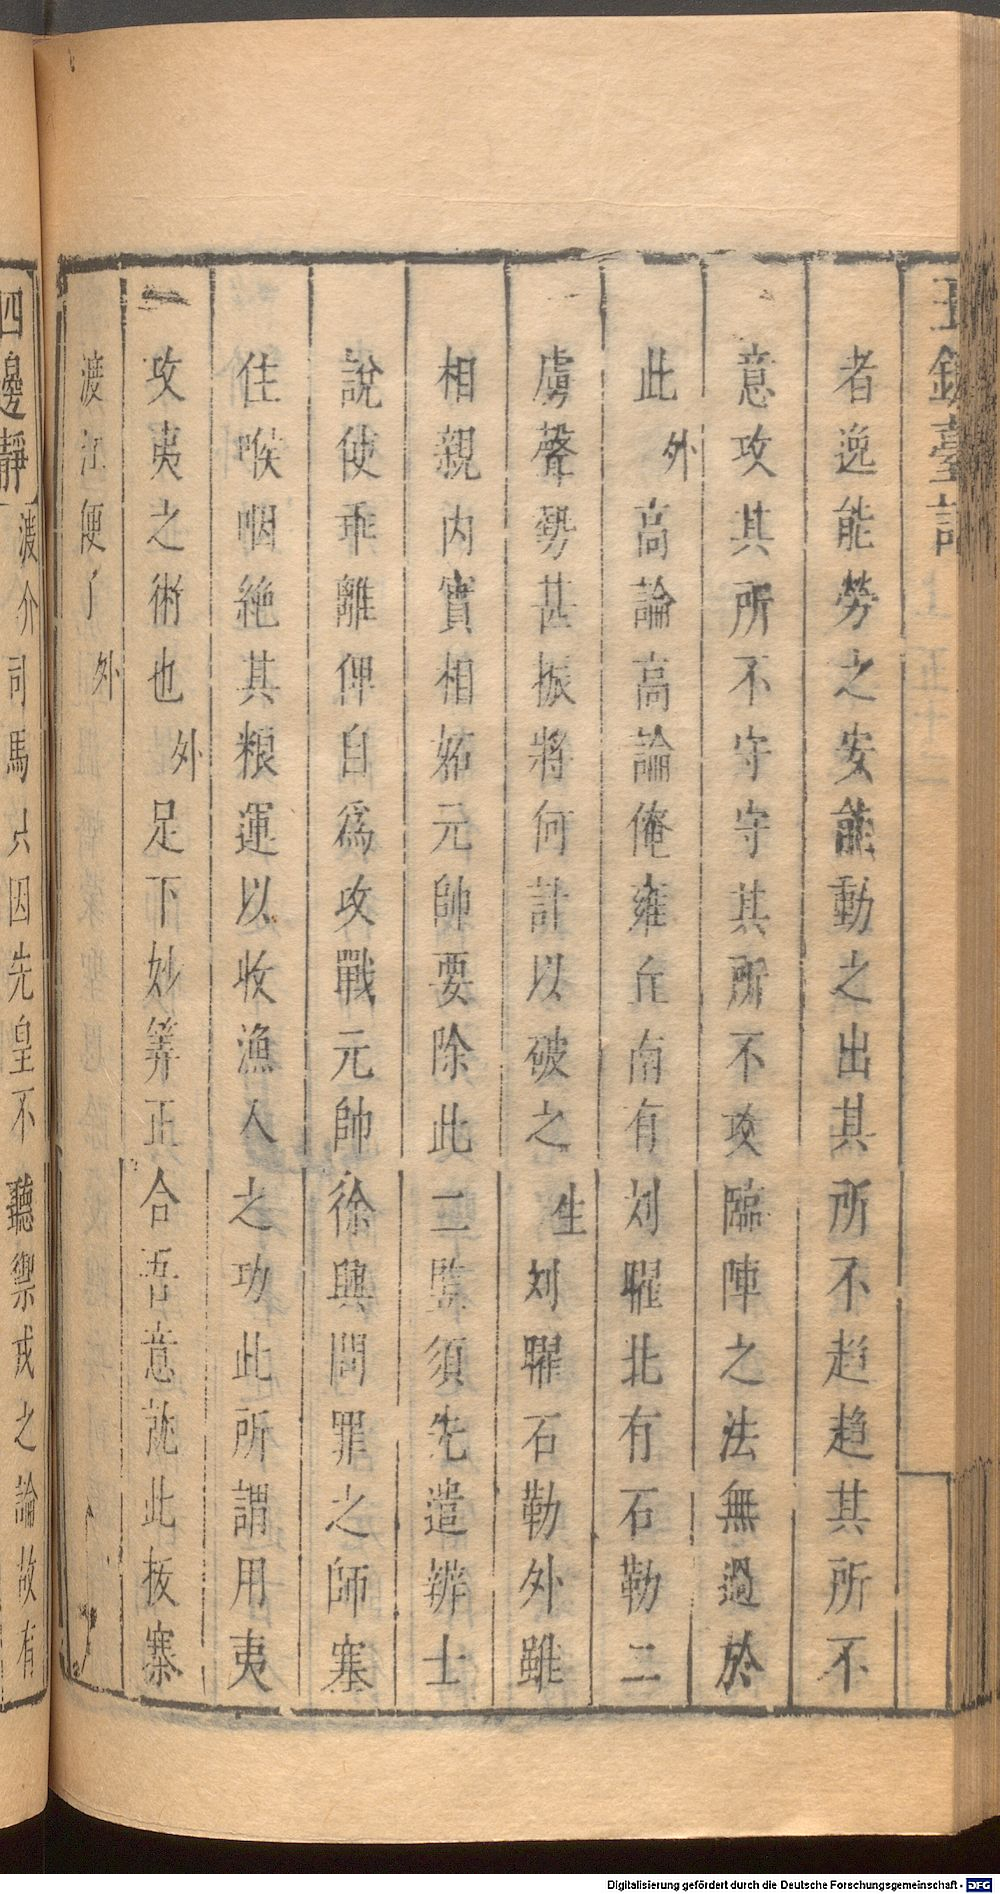 玉鏡臺記
者逸能勞之安能動之出其所不趨趨其所不
意攻其所不守守其所不攻臨陣之法無過於
此外高論高論俺雍丘南有刘曜北有石勒二
虜聲勢甚振將何計以破之生刘曜石勒外雖
相親内實相妬元帥要除此二監須先遣辨士
說使乖離俾自爲攻戰元帥徐興問罪之師塞
住喉咽絶其粮運以收漁人之功此所謂用夷
攻夷之術也外足下妙筭正合吾意就此拔寨
渡江便了外
四邊靜渡介司馬只因先皇不聽禦戎之論故有
Digitalisierung gefördert durch die Deutsche Forschungsgemeinschaft - DFG